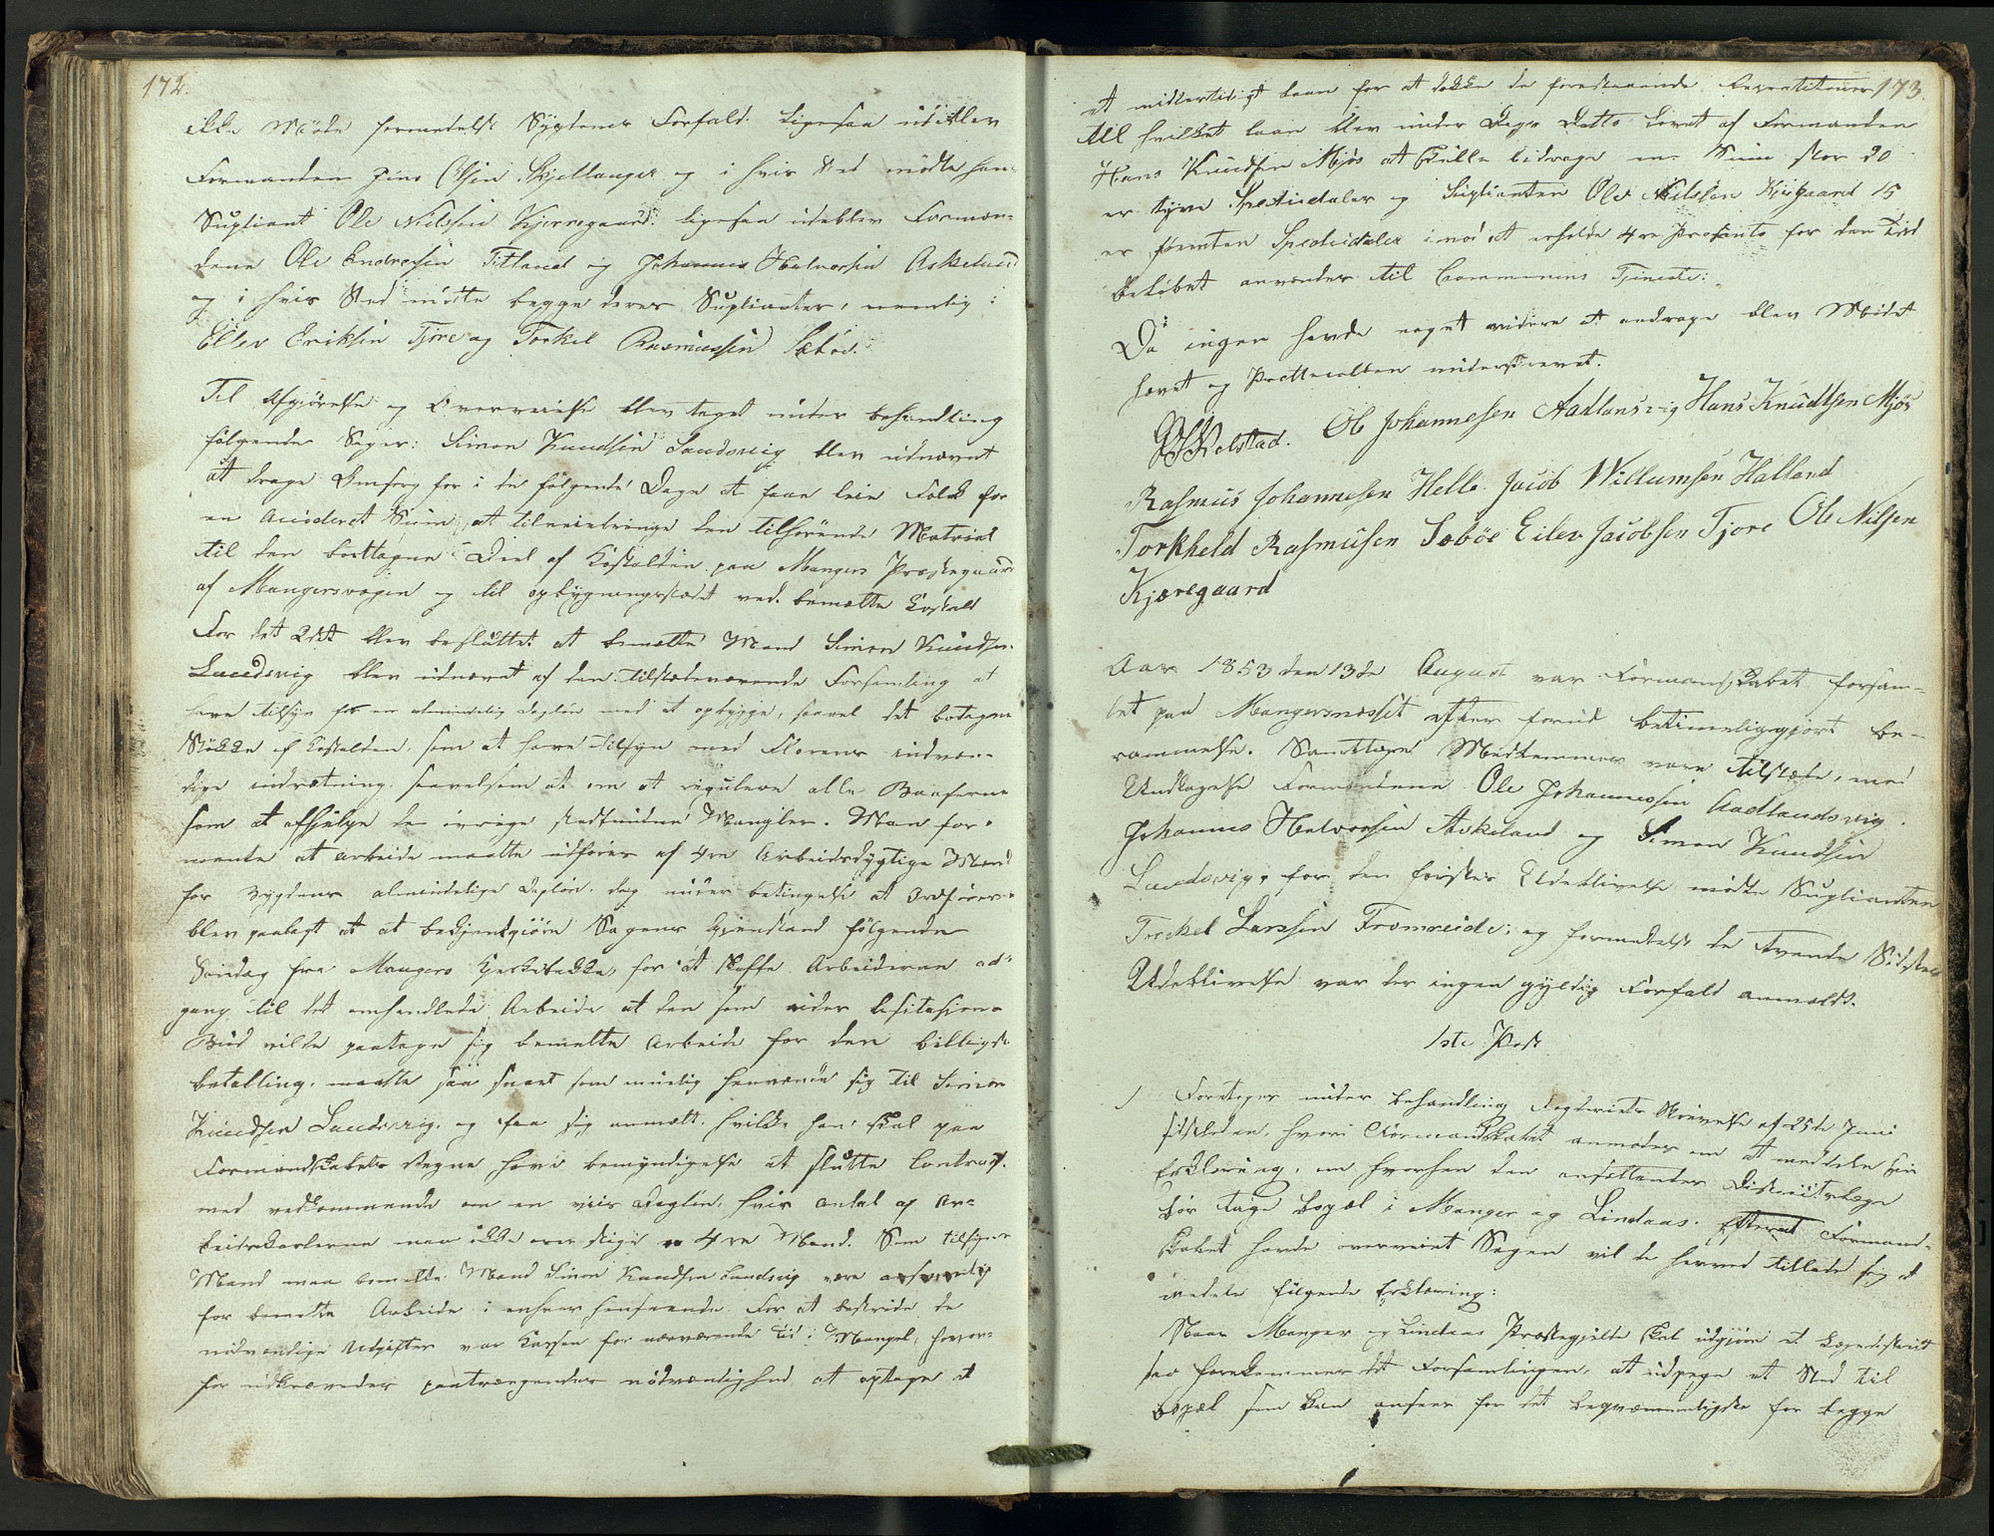 172.
ikke Møde formedelst Sygdoms Forfald. Ligesaa udeblev
Formanden Jens Olsen Skjellanger og i hvis Sted mødte hans
Supliant Ole Nilssen Kjerregaard. ligesaa udeblev Formæn-
dene Ole Andressen Titland og Johannes Halvorsen Askeland
og i hvis Sted mødte begge deres Suplianter, nemlig:
Ellev Eriksen Tjore og Torkel Rasmussen Sæbøe.
Til Afgjørelse og Overveielse blev taget under behandling
følgende Sager: Simon Knudsen Landsvig blev udnævnt
at drage Omsorg for i de følgende Dage at faae leie Folk for
en Sum, at tilveiebringe den tilhørende Matrial
til den borttagne Deel af Kostalden paa Mangers Præstegaard
af Mangersvogen og til opbygningsstædet ved bemælte Kostald
For det 2det blev besluttet at bemælte Mand Simon Knudsen
Landsvig blev udnævnt af den tilstædeværende Forsamling at
have tilsyn for en almindelig Dagløn med at opbygge, saavel det botagne
Støkke af Kostalden, som at have tilsyn med Florens indven-
dige indrætning, saavelsom at om at regulere alle Baaserne
som at afhjelpe de øvrige Mangler. Man for-
mente at arbeide maatte udføres af 4re Arbeidsdygtige Mænd
for Bygdens almindelige Dagløn, dog under betingelse at Ordføreren
blev paalagt at at bekjentgjøre Sagens Gjenstand følgende
Søndag fra Mangers Kjerkebakke, for at skaffe Arbeiderne ad-
gang til det omhandlede Arbeide at den som
Bud vilde paatage sig bemelte Arbeide for den billigste
betalling, maatte saa snart som muelig henvende sig til Simon
Knudsen Landsvig, og faa sig anmælt, hvilke han skal paa
Formandskabets Vegne have bemyndigelse at slutte Contract
med vedkommende om en viis Dagløn, hvis antal af Ar-
beidskarlerne maa ikke overstige 4re Mand. Som tilsyns
Mand maa bemelte Mand Simon Knudsen Landsvig være ansvarlig
for bemelte Arbeide i enhver henseende. For at bestride de
nødvendige Udgifter var Kassen for nærværende tid i Mangel, hvor-
for udkrævedes paatrængende nødvendighed at optage et
173.
et midlertidigt Laan for at dække de forestaaende Reparationer
til hvilket laan blev under Dags Datto lovet af Formanden
Hans Knudsen Mjøs at skulle bidrage en Sum stor 20
er tyve Spesiedaler og Suplianten Ole Nilssen Kjærgaard 15
er femten Speciedaler imod at erholde 4re Prosento for den Tid
beløbet anvendes til Communens Tjeneste.
Da ingen havde noget videre at andrage blev Mødet
hævet og Prottocollen underskrevet.
Kolstad. Ole Johannesen Aadlansvig Hans Knudtsen Mjøs
Rasmus Johannesen Helle. Jacob Willumsen Halland
Torkheld Rasmusen Sæbøe Eilev Jacobsen Tjore Ole Nilsen
Kjæregaard
Aar 1853 den 13de August var Formandskabet forsam-
let paa Mangersnæsset efter forud betimeliggjort be-
rammelse. Samtlige Medlemmer vare tilstæde, med
Undtagelse Formændene Ole Johannessen Aadlandsvig.
Johannes Halvorsen Askeland og Simon Knudsen
Landsvig, for den førstes Udeblivelse mødte Suplianten
Torkel Larssen Fromreide, og formedelst de tvende Sidstes
Udeblivelse var der ingen gyldig Forfald anmældt.
1ste Post
1 Foretages under behandling Fogderiets Skrivelse af 25de Juni
sidstleden, hvori Formandskabet anmodes om at meddele sin
Erklæring, om hvorhen den ansættendes Districtslæge
bør tage bopæl i Manger og Lindaas. Efterat Formand-
skabet havde overveiet Sagen vil de herved tillade sig at
medele følgende Erklæring:
Naar Manger og Lindaas Præstegjelde skal udgjøre et Lægedistrict
saa forekommer det Forsamlingen, at udpege et Sted til
bopæl som kan ansees for det beqvæmmeligste for begge